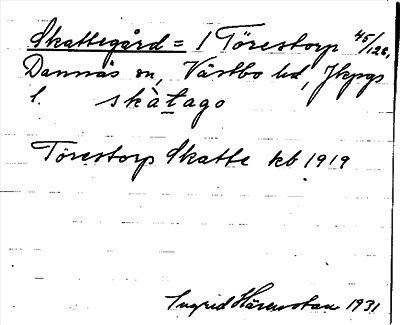 Skattegård = 1 Törestorp 45/128,
Dannäs sn, Västbo hd, Jkpgs
l. skàtago
Törestorp Skatte kb 1919
Ingrid 1931